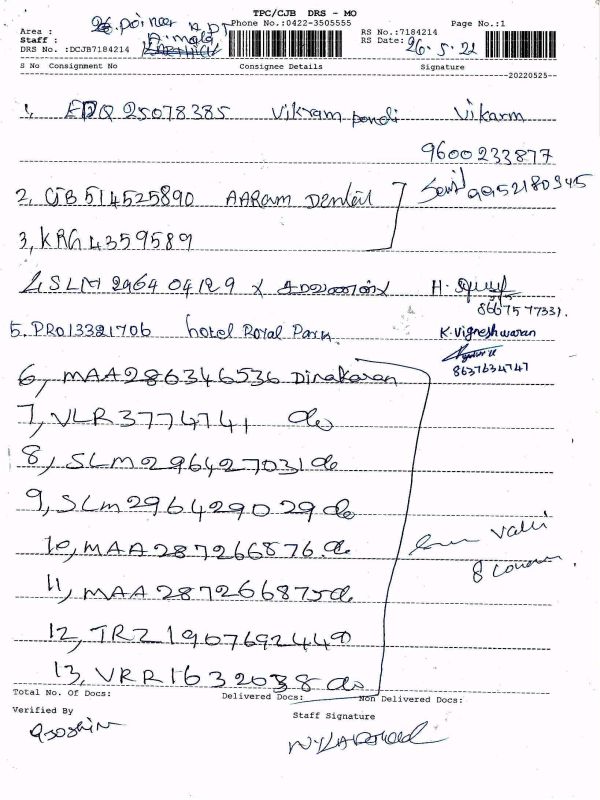 TPC/CJB DRS - MO
Area : 26. poineer
Phone No.:0422-3505555
Page No.:1
Staff :
RS No.:7184214
RS Date: 26.5.22
DRS No. :DCJB7184214
S No Consignment No Consignee Details Signature
20220525
1, EDQ 25078385 Vikram pondi Vikarm
9600233877
2, CJB 514525890 AARam Dental
9952180345
3, KRG 4359589
4, SLM 296404129 H.
8667577331.
5. PRO13321706 hotel Royal Park. K. Vigneshwaran
8637634747
6, MAA286346536 Dinakaran
7, VLR3774741 do
8, SLM296427031 do
9, SLM296429029 do
10, MAA287266876 do
11, MAA287266875 do
12, TRZ190769244 do
13, VRR1632038 do
Valli
8
Total No. Of Docs: Delivered Docs: Non Delivered Docs:
Verified By
Staff Signature